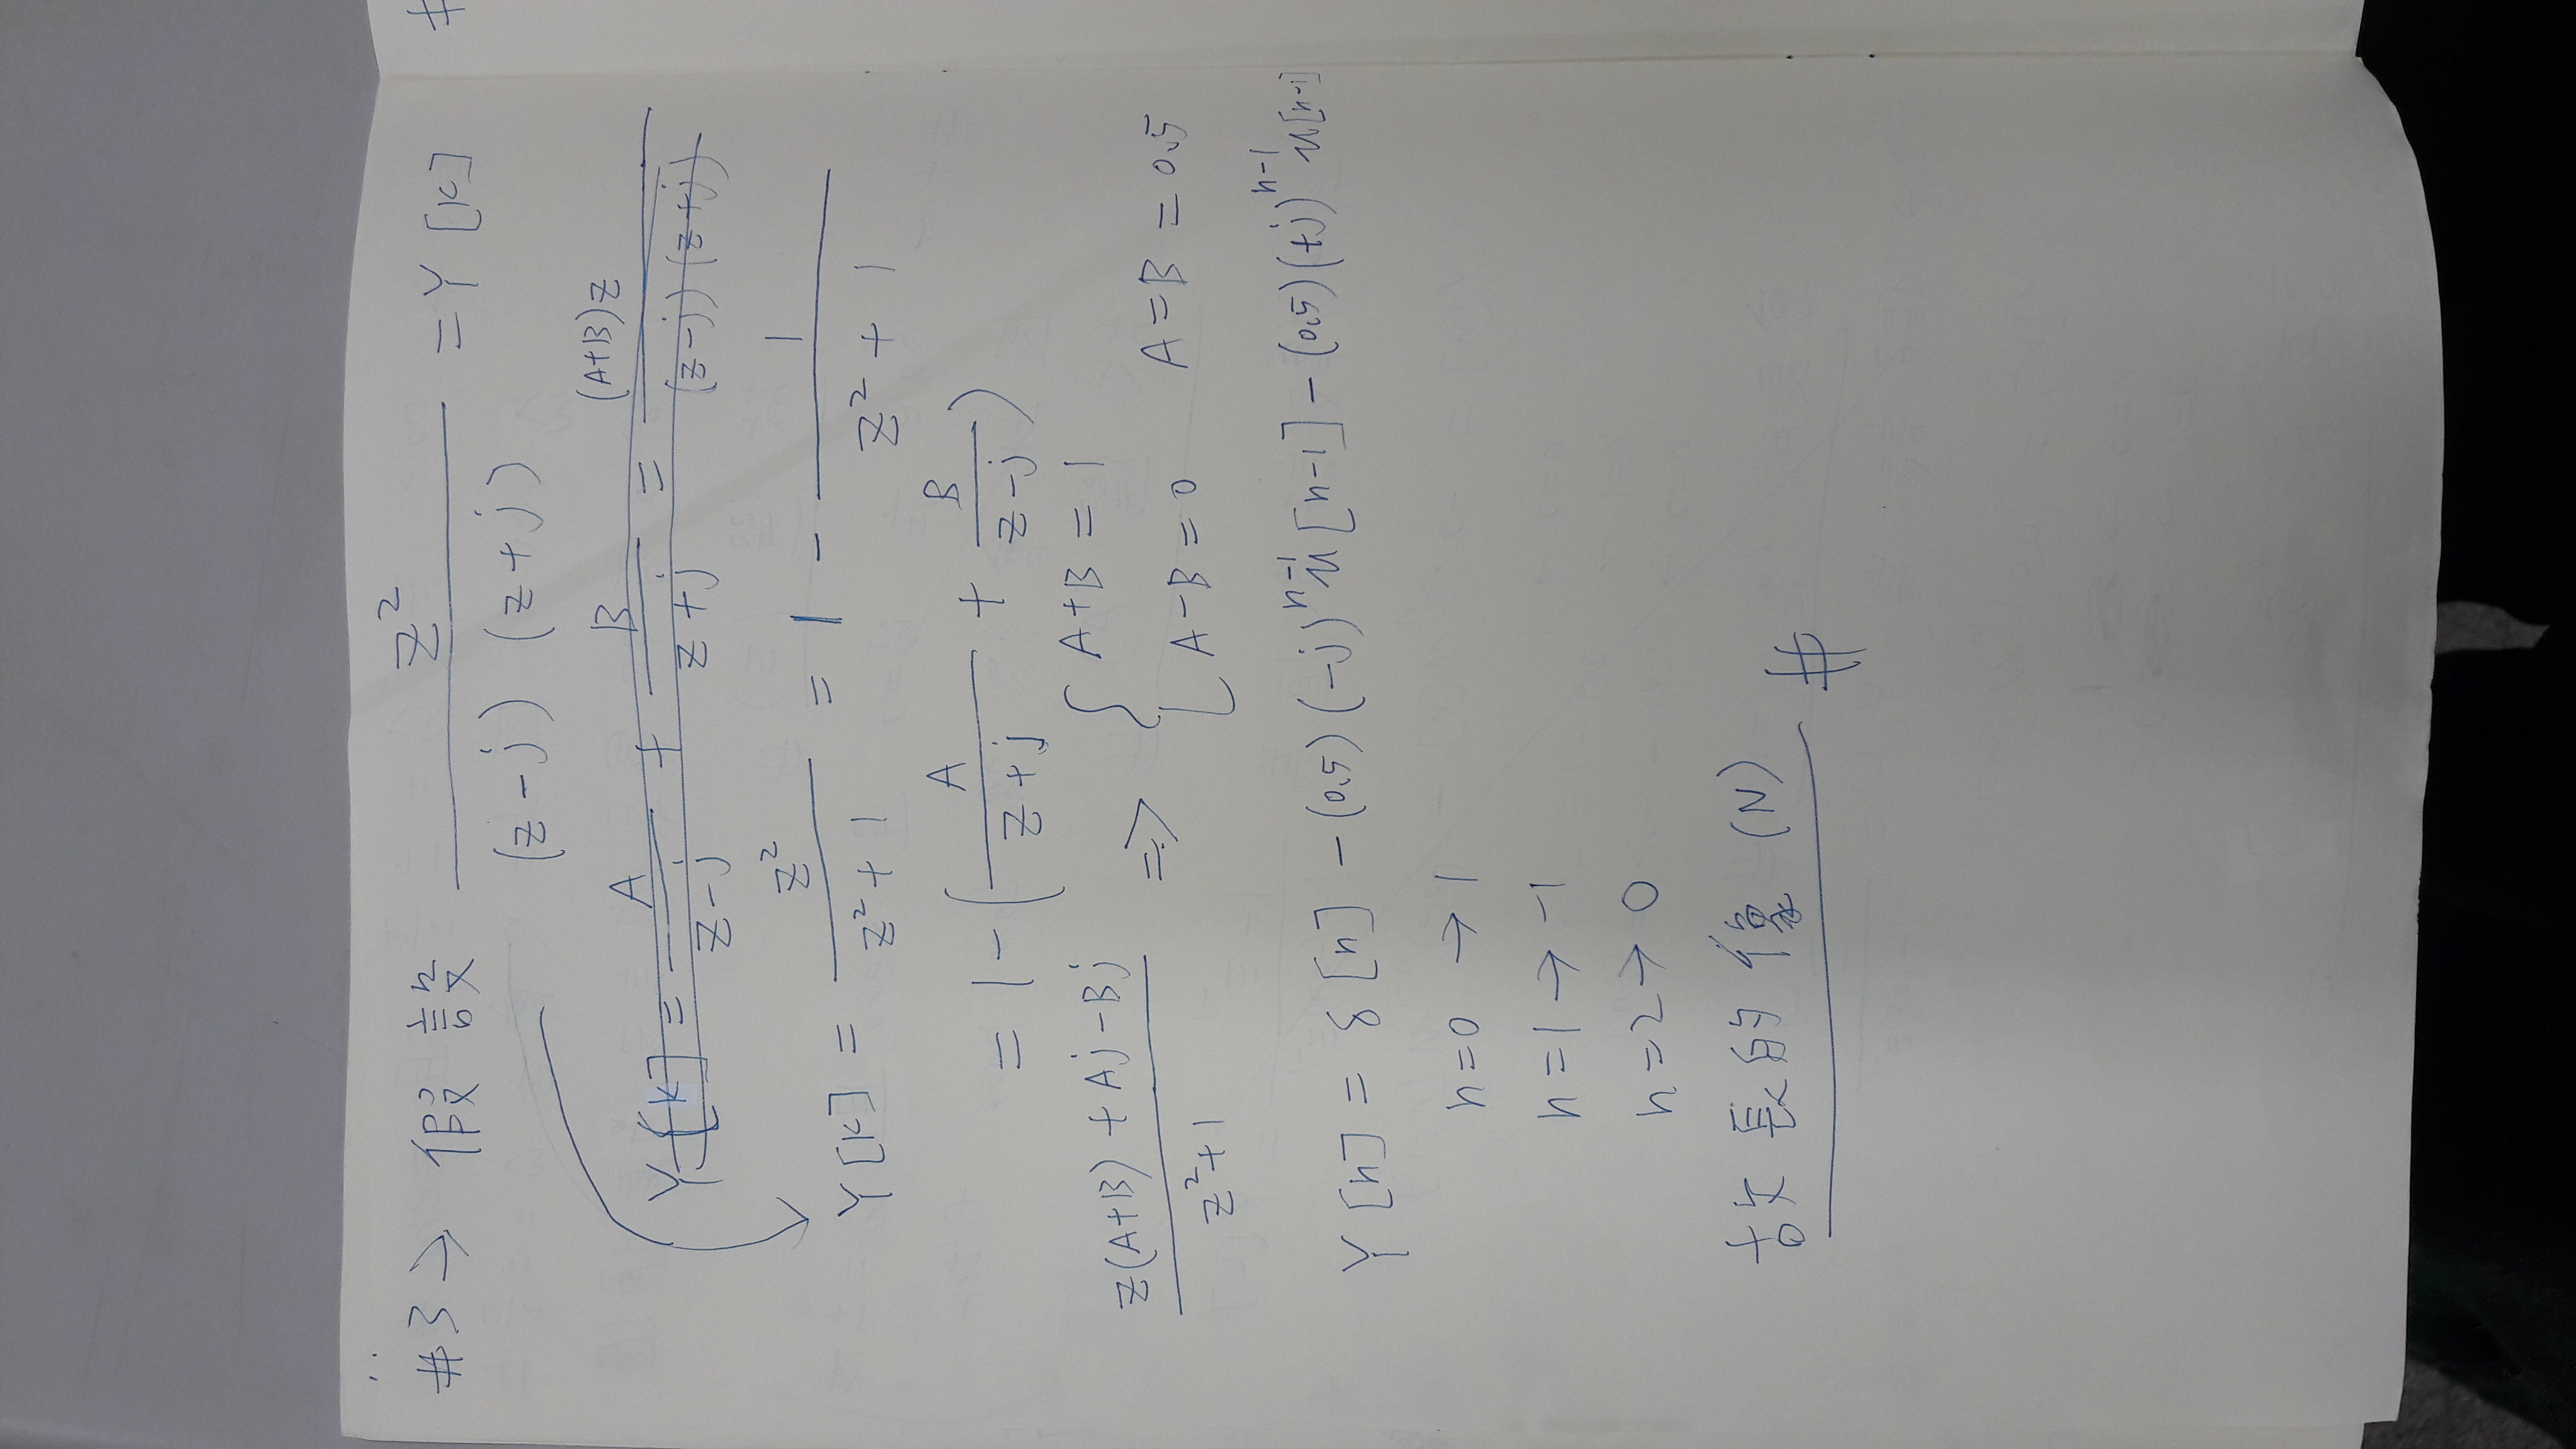 #3 → 假設 z² / (z-j) (z+j) = Y [K]
Y [K] = A / z-j + B / z+j = (A+B)z / (z-j) (z+j)
Y [K] = z² / z²+1 = 1 - 1 / z²+1
= 1 - ( A / z+j + B / z-j )
z(A+B) + Aj - Bj / z²+1 => { A+B = 1
A-B = 0 A=B = 0.5
Y [n] = δ [n] - (0.5) (-j)ⁿ⁻¹ u [n-1] - (0.5) (+j)ⁿ⁻¹ u[n-1]
n=0 → 1
n=1 → -1
n=2 → 0
故長的像 (N) #